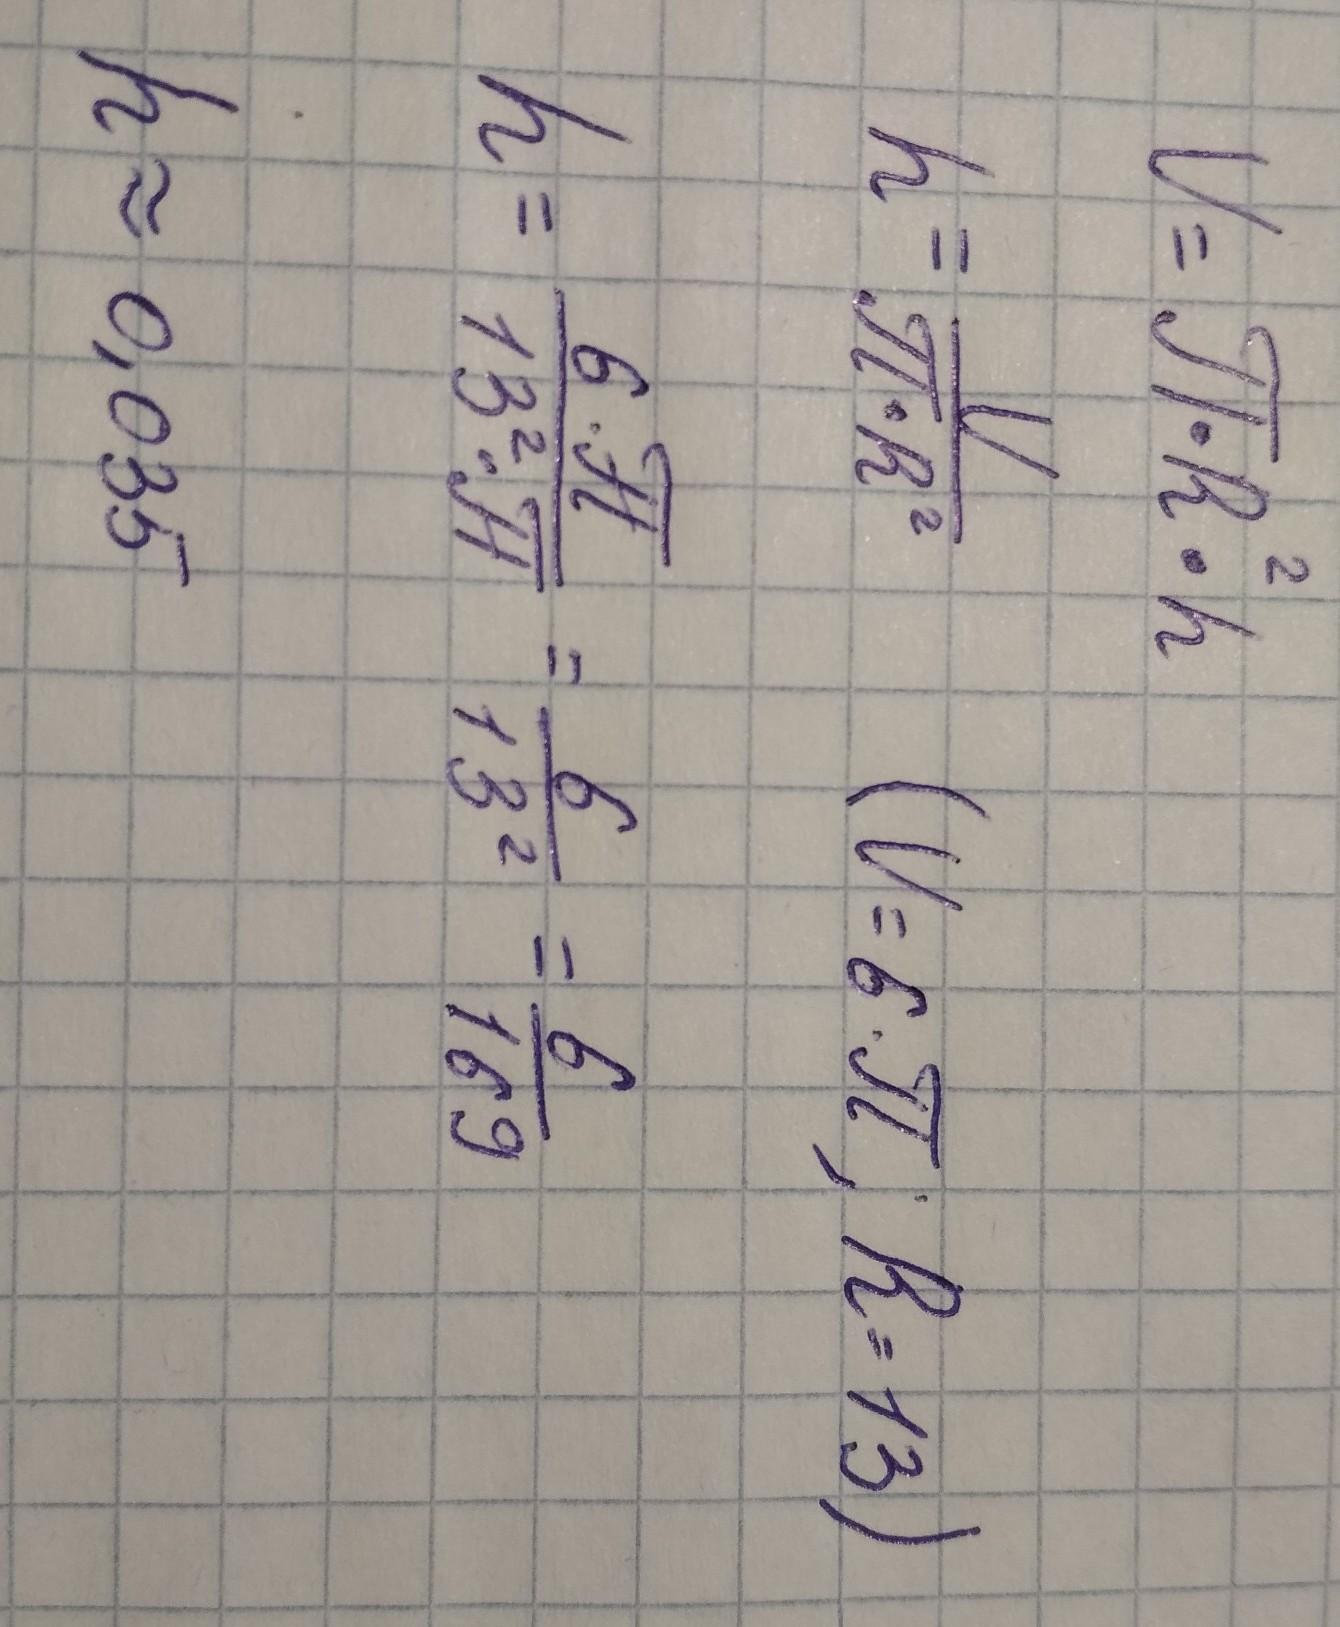 V = π · R² · h
h = V / π · R² (V = 6 · π, R = 13)
h = 6 · π / 13² · π = 6 / 13² = 6 / 169
h ≈ 0,035